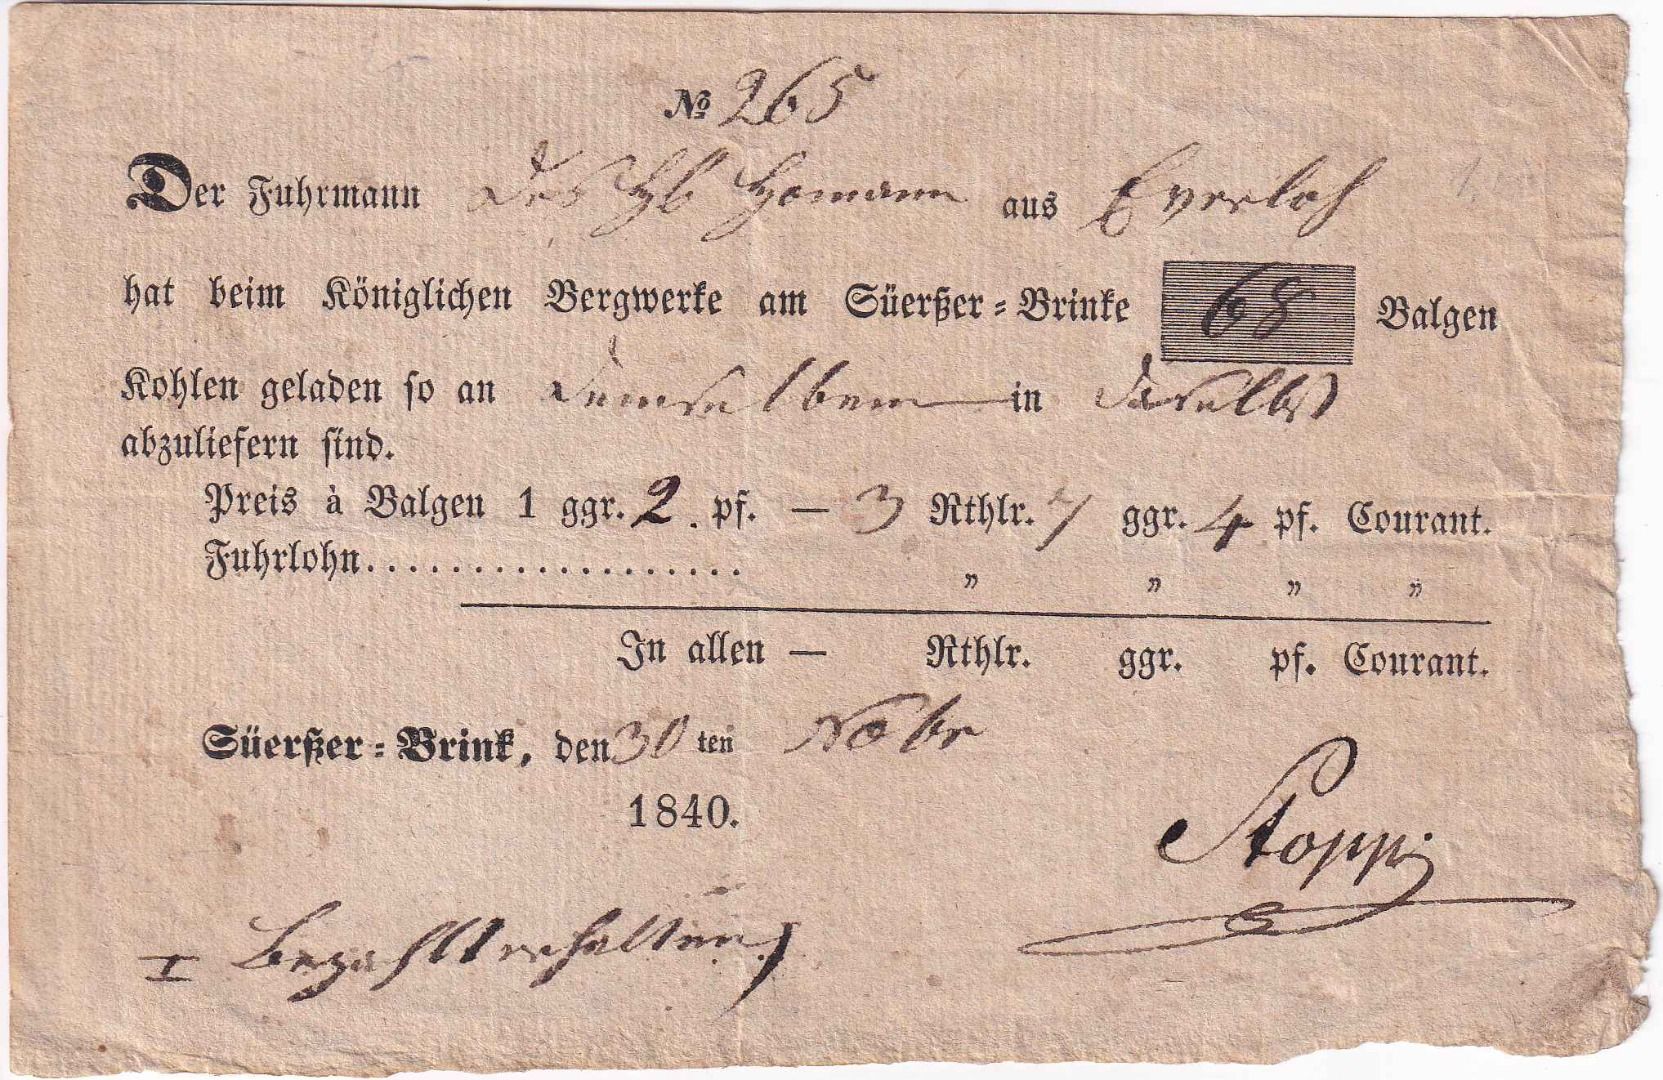 № 265
Der Fuhrmann des Hb Homann aus Everloh
hat beim Königlichen Bergwerke am Süerßer-Brinke 68 Balgen
Kohlen geladen so an demselben in daselbst
abzuliefern sind.
Preis à Balgen 1 ggr. 2. pf. — 3 Rthlr. 7 ggr. 4 pf. Courant.
Fuhrlohn................... „ „ „ „
In allen — Rthlr. ggr. pf. Courant.
Süerßer-Brink, den 30 ten Nobr
1840.
Stopp
Bezahlt erhalten